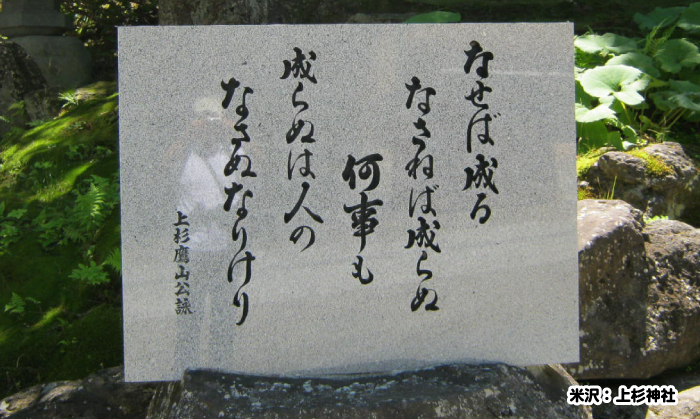 なせば成る
なさねば成らぬ
何事も
成らぬは人の
なさぬなりけり
上杉鷹山公詠
米沢：上杉神社